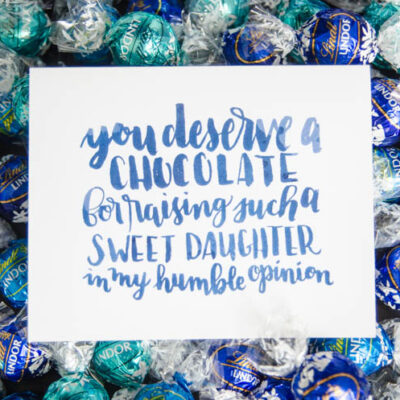 you deserve a
CHOCOLATE
for raising such a
SWEET DAUGHTER
in my humble opinion
LINDOR
Lindt
LINDOR
Lindt
LINDOR
LINDOR
LINDOR
LINDOR
Lindt
LINDOR